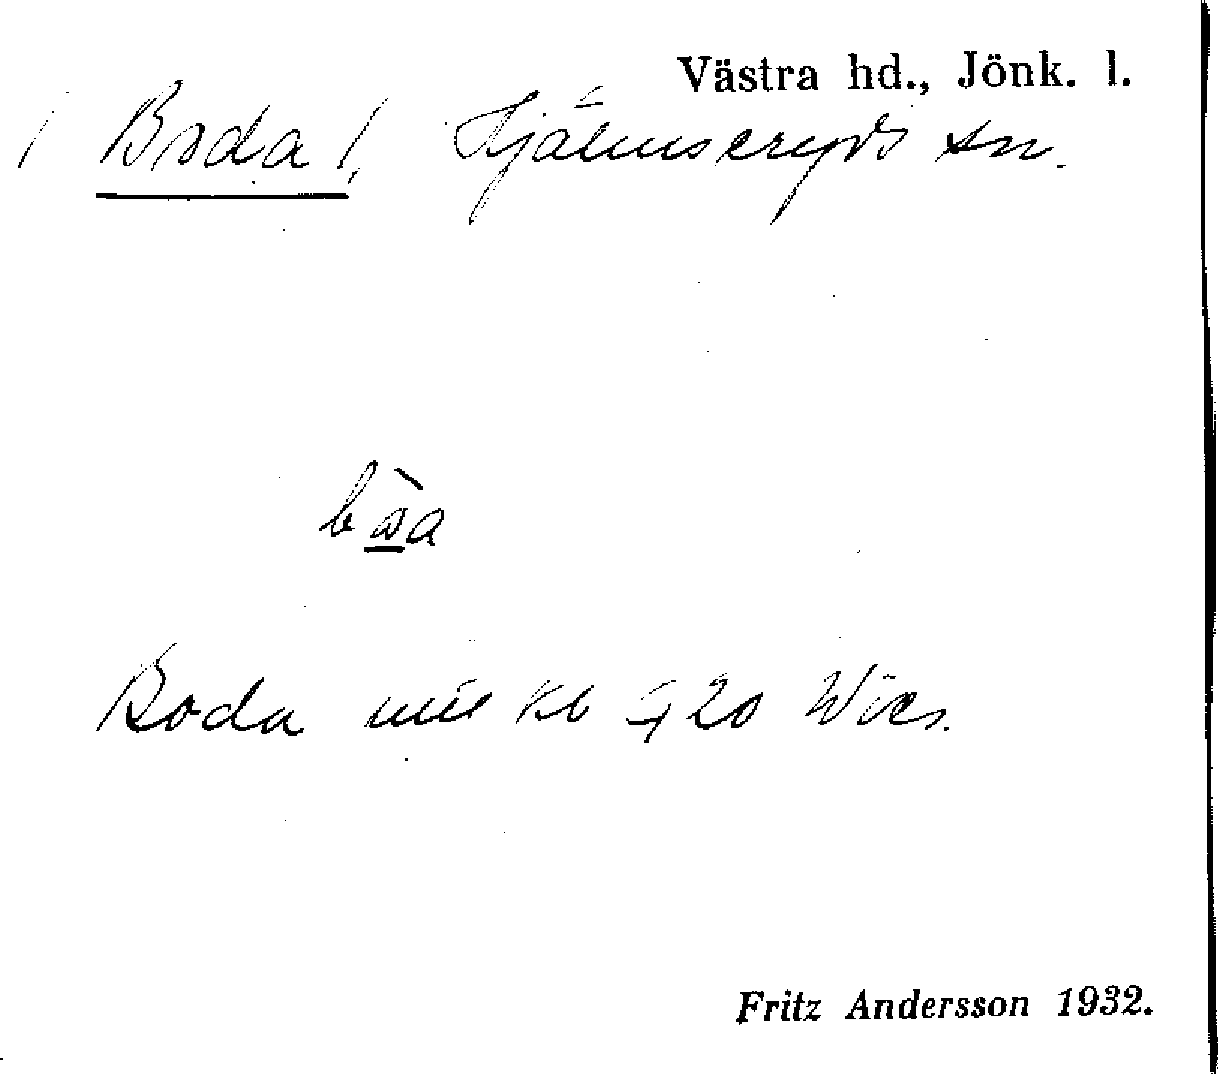 Västra hd., Jönk. l.
/ Boda /, Hjälmseryds sn.
bòa
Boda 420 Wies.
Fritz Andersson 1932.